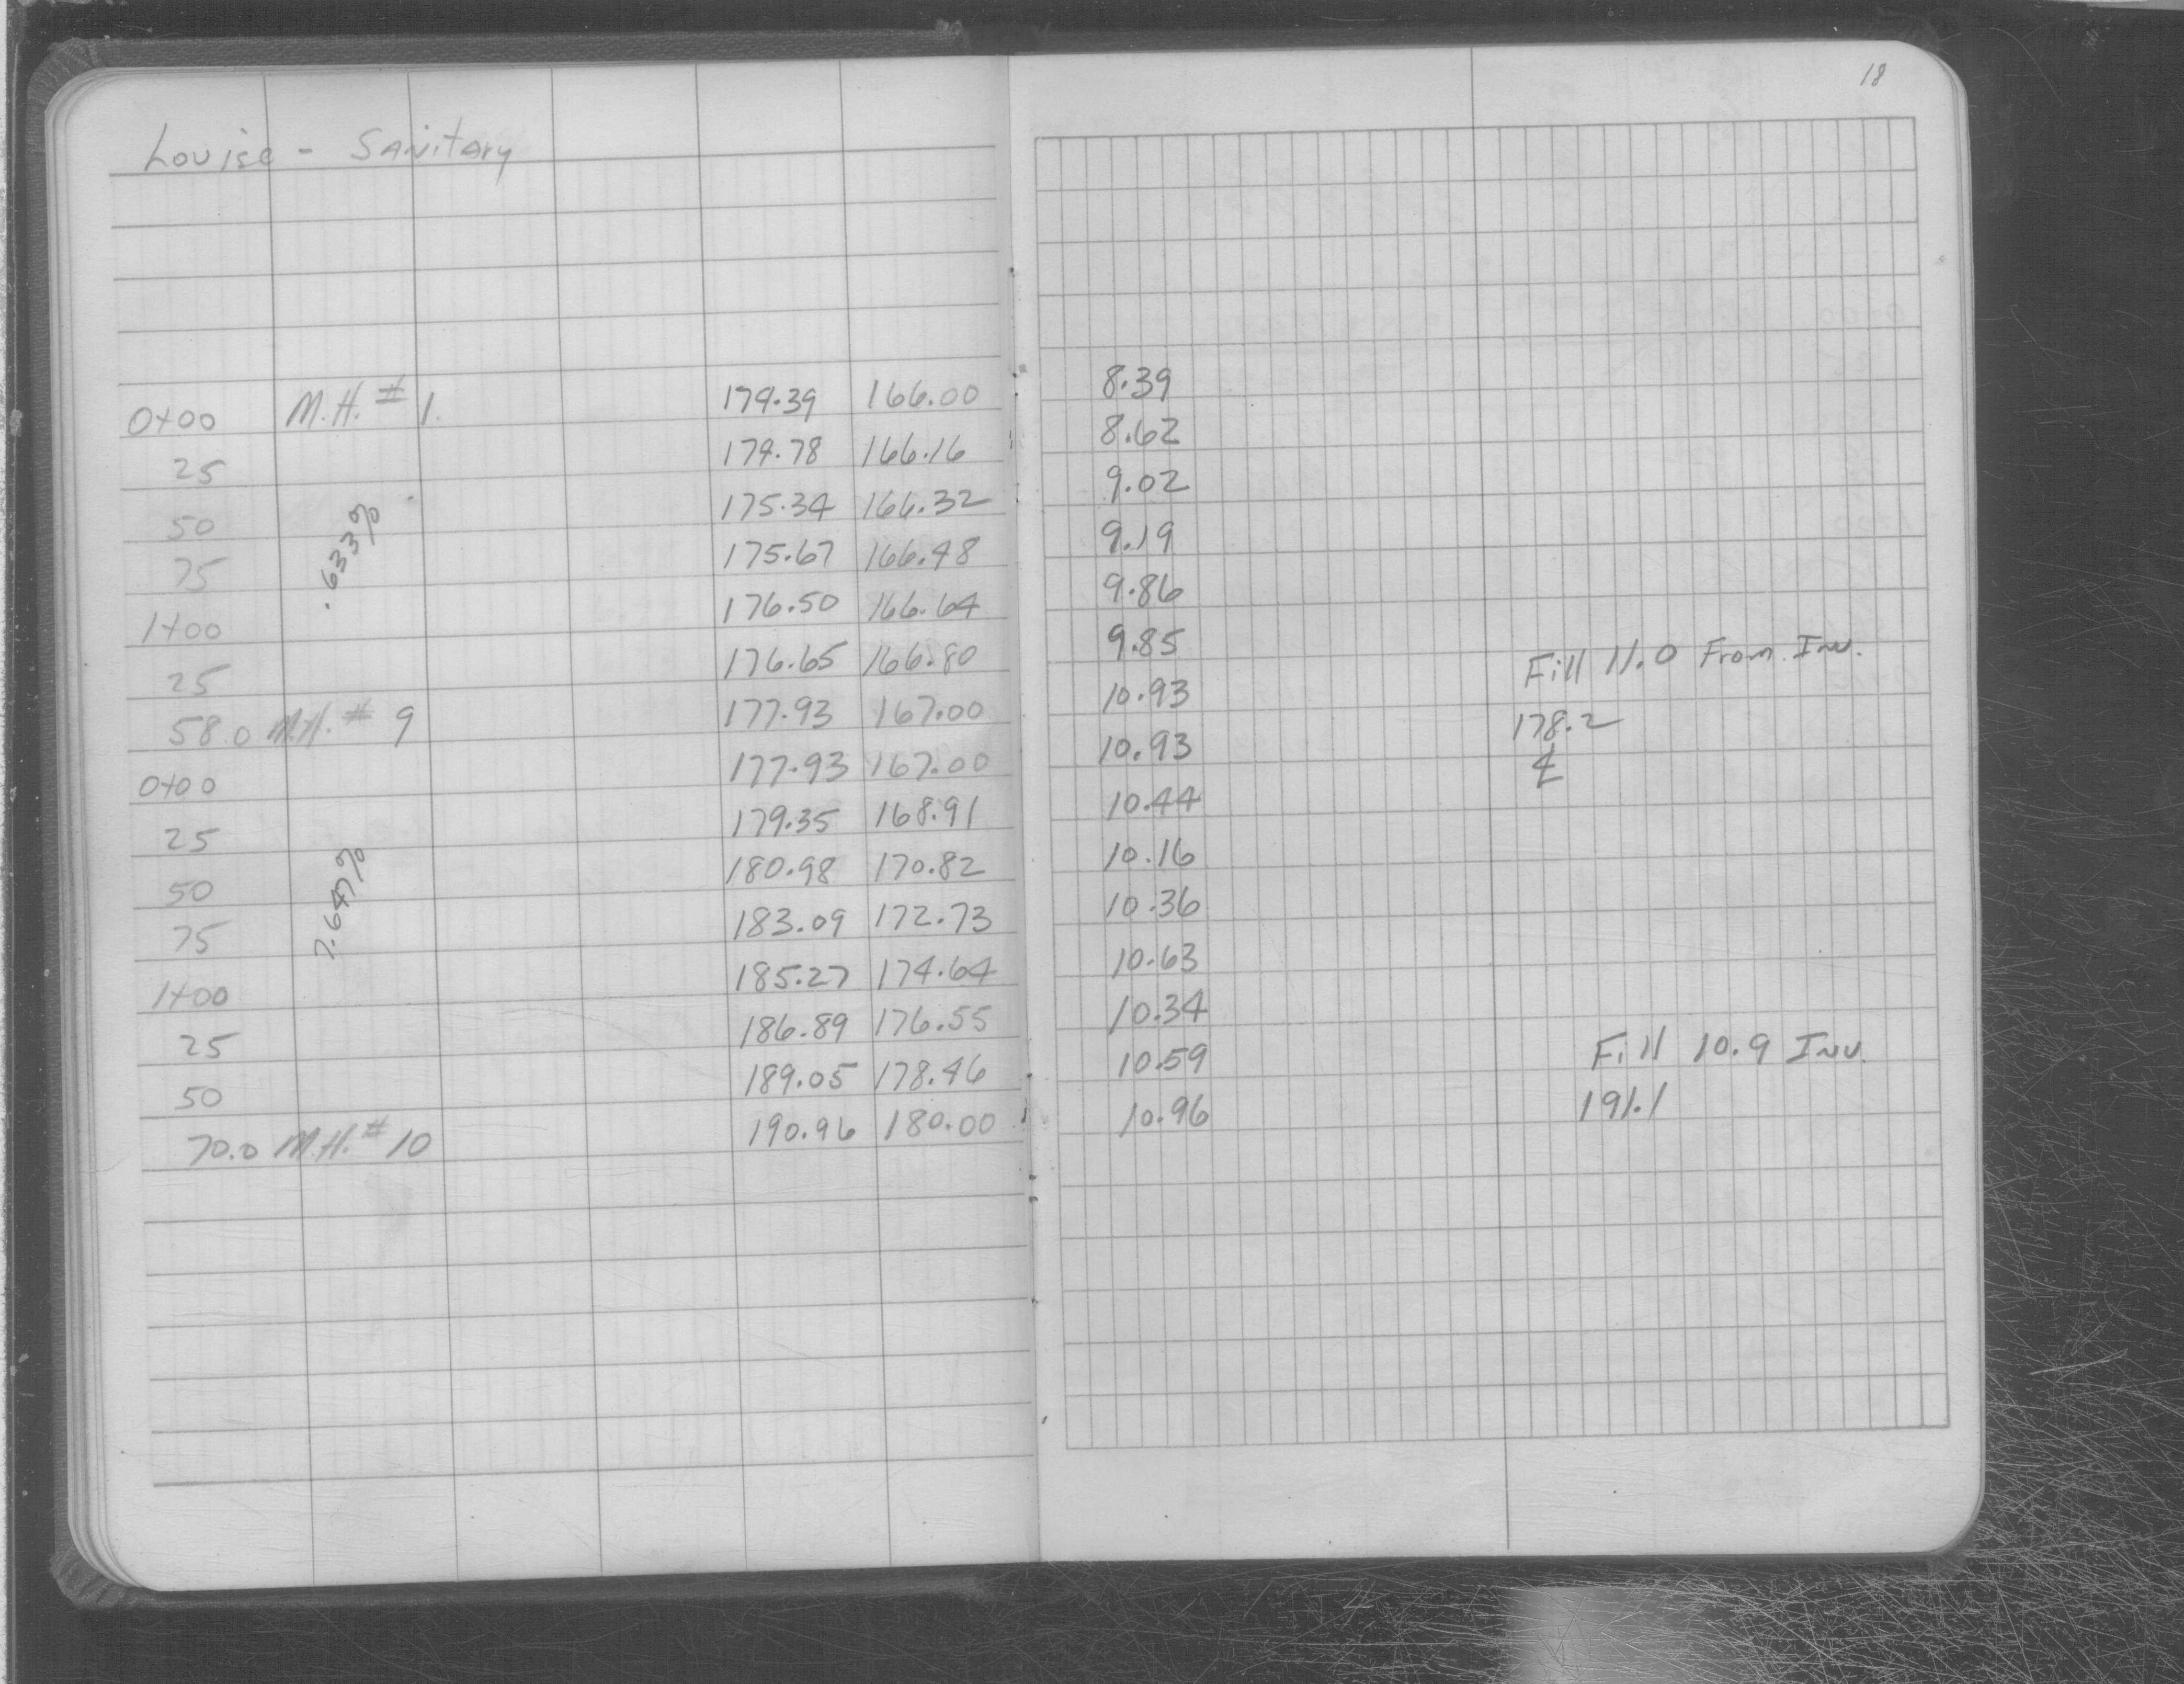 Louise - Sanitary
0+00 M.H. # 1. 174.39 166.00
25 174.78 166.16
50 175.34 166.32
75 175.67 166.48
.633%
1+00 176.50 166.64
25 176.65 166.80
58.0 M.H. # 9 177.93 167.00
0+00 177.93 167.00
25 179.35 168.91
50 180.98 170.82
75 183.09 172.73
7.647%
1+00 185.27 174.64
25 186.89 176.55
50 189.05 178.46
70.0 M.H. # 10 190.96 180.00
18
8.39
8.62
9.02
9.19
9.86
9.85 Fill 11.0 From Inv.
10.93 178.2
10.93 ℄
10.44
10.16
10.36
10.63
10.34
10.59 Fill 10.9 Inv.
10.96 191.1